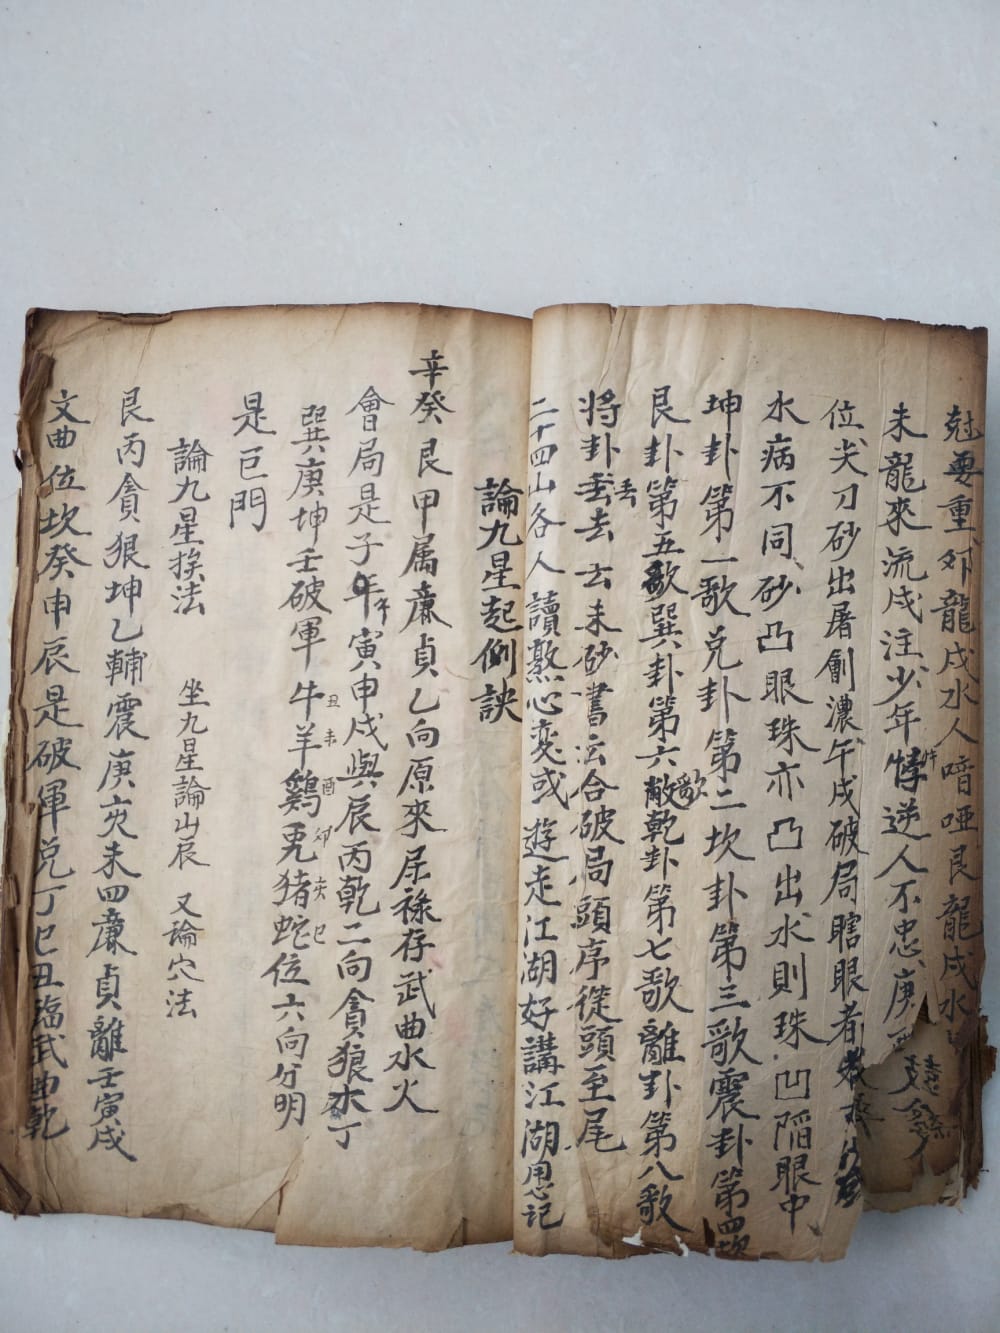 尅要重邜龍戌水人喑啞艮龍戌水
未龍來流戌注少年悖逆人不忠庚
位尖刀砂出屠劊濃午戌破局瞎眼者
水病不同砂凸眼珠亦凸出水則珠凹陷眼中
坤卦第一歌兑卦第二坎卦第三歌震卦第四
艮卦第五歌巽卦第六歌乾卦第七歌離卦第八歌
將卦丢去去未砂書云合破局頭序從頭至尾
二十四山各人讀熬心变或遊走江湖好講江湖思记
論九星起例訣
辛癸艮甲属亷貞乙向原來居祿存武曲水火
會局是子午寅申戌與辰丙乾二向貪狼木丁
巽庚坤壬破軍牛丑羊未鷄酉兎卯猪亥蛇巳位六向分明
是巨門
論九星挨法 坐九星論山辰 又論穴法
艮丙貪狼坤乙輔震庚亥未四亷貞離壬寅戌
文曲位坎癸申辰是破軍兑丁巳丑臨武曲乾